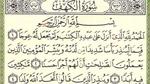 سُورَةُ الْكَهْفِ
بِسْمِ اللَّهِ الرَّحْمَٰنِ الرَّحِيمِ
الْحَمْدُ لِلَّهِ الَّذِي أَنْزَلَ عَلَىٰ عَبْدِهِ الْكِتَابَ وَلَمْ يَجْعَلْ لَهُ عِوَجًا
قَيِّمًا لِيُنْذِرَ بَأْسًا شَدِيدًا مِنْ لَدُنْهُ وَيُبَشِّرَ الْمُؤْمِنِينَ
الَّذِينَ يَعْمَلُونَ الصَّالِحَاتِ أَنَّ لَهُمْ أَجْرًا حَسَنًا
مَاكِثِينَ فِيهِ أَبَدًا وَيُنْذِرَ الَّذِينَ قَالُوا اتَّخَذَ اللَّهُ وَلَدًا